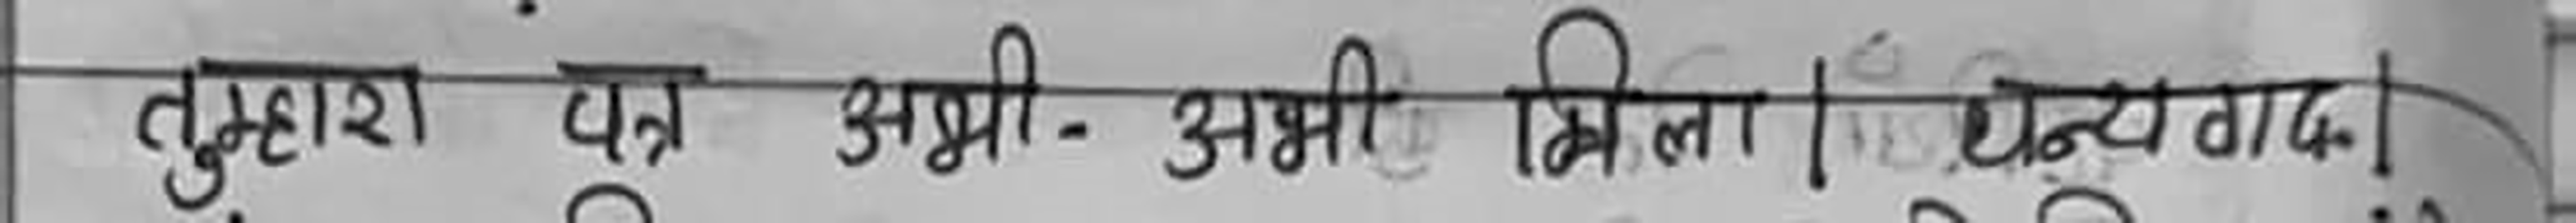 तुम्हारा पत्र अभी- अभी मिला। धन्यवाद।